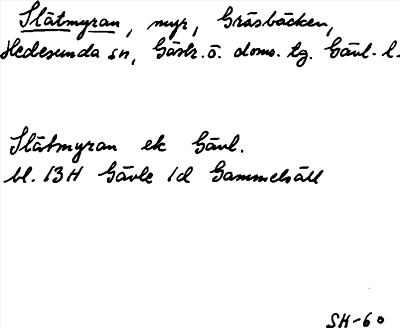 Slåtmyran, myr, Gräsbäcken,
Hedesunda sn, Gästr. ö. doms. tg. Gävl. l.
Slåtmyran ek Gävl.
bl. 13H Gävle 1d Gammelsäll
SH-60